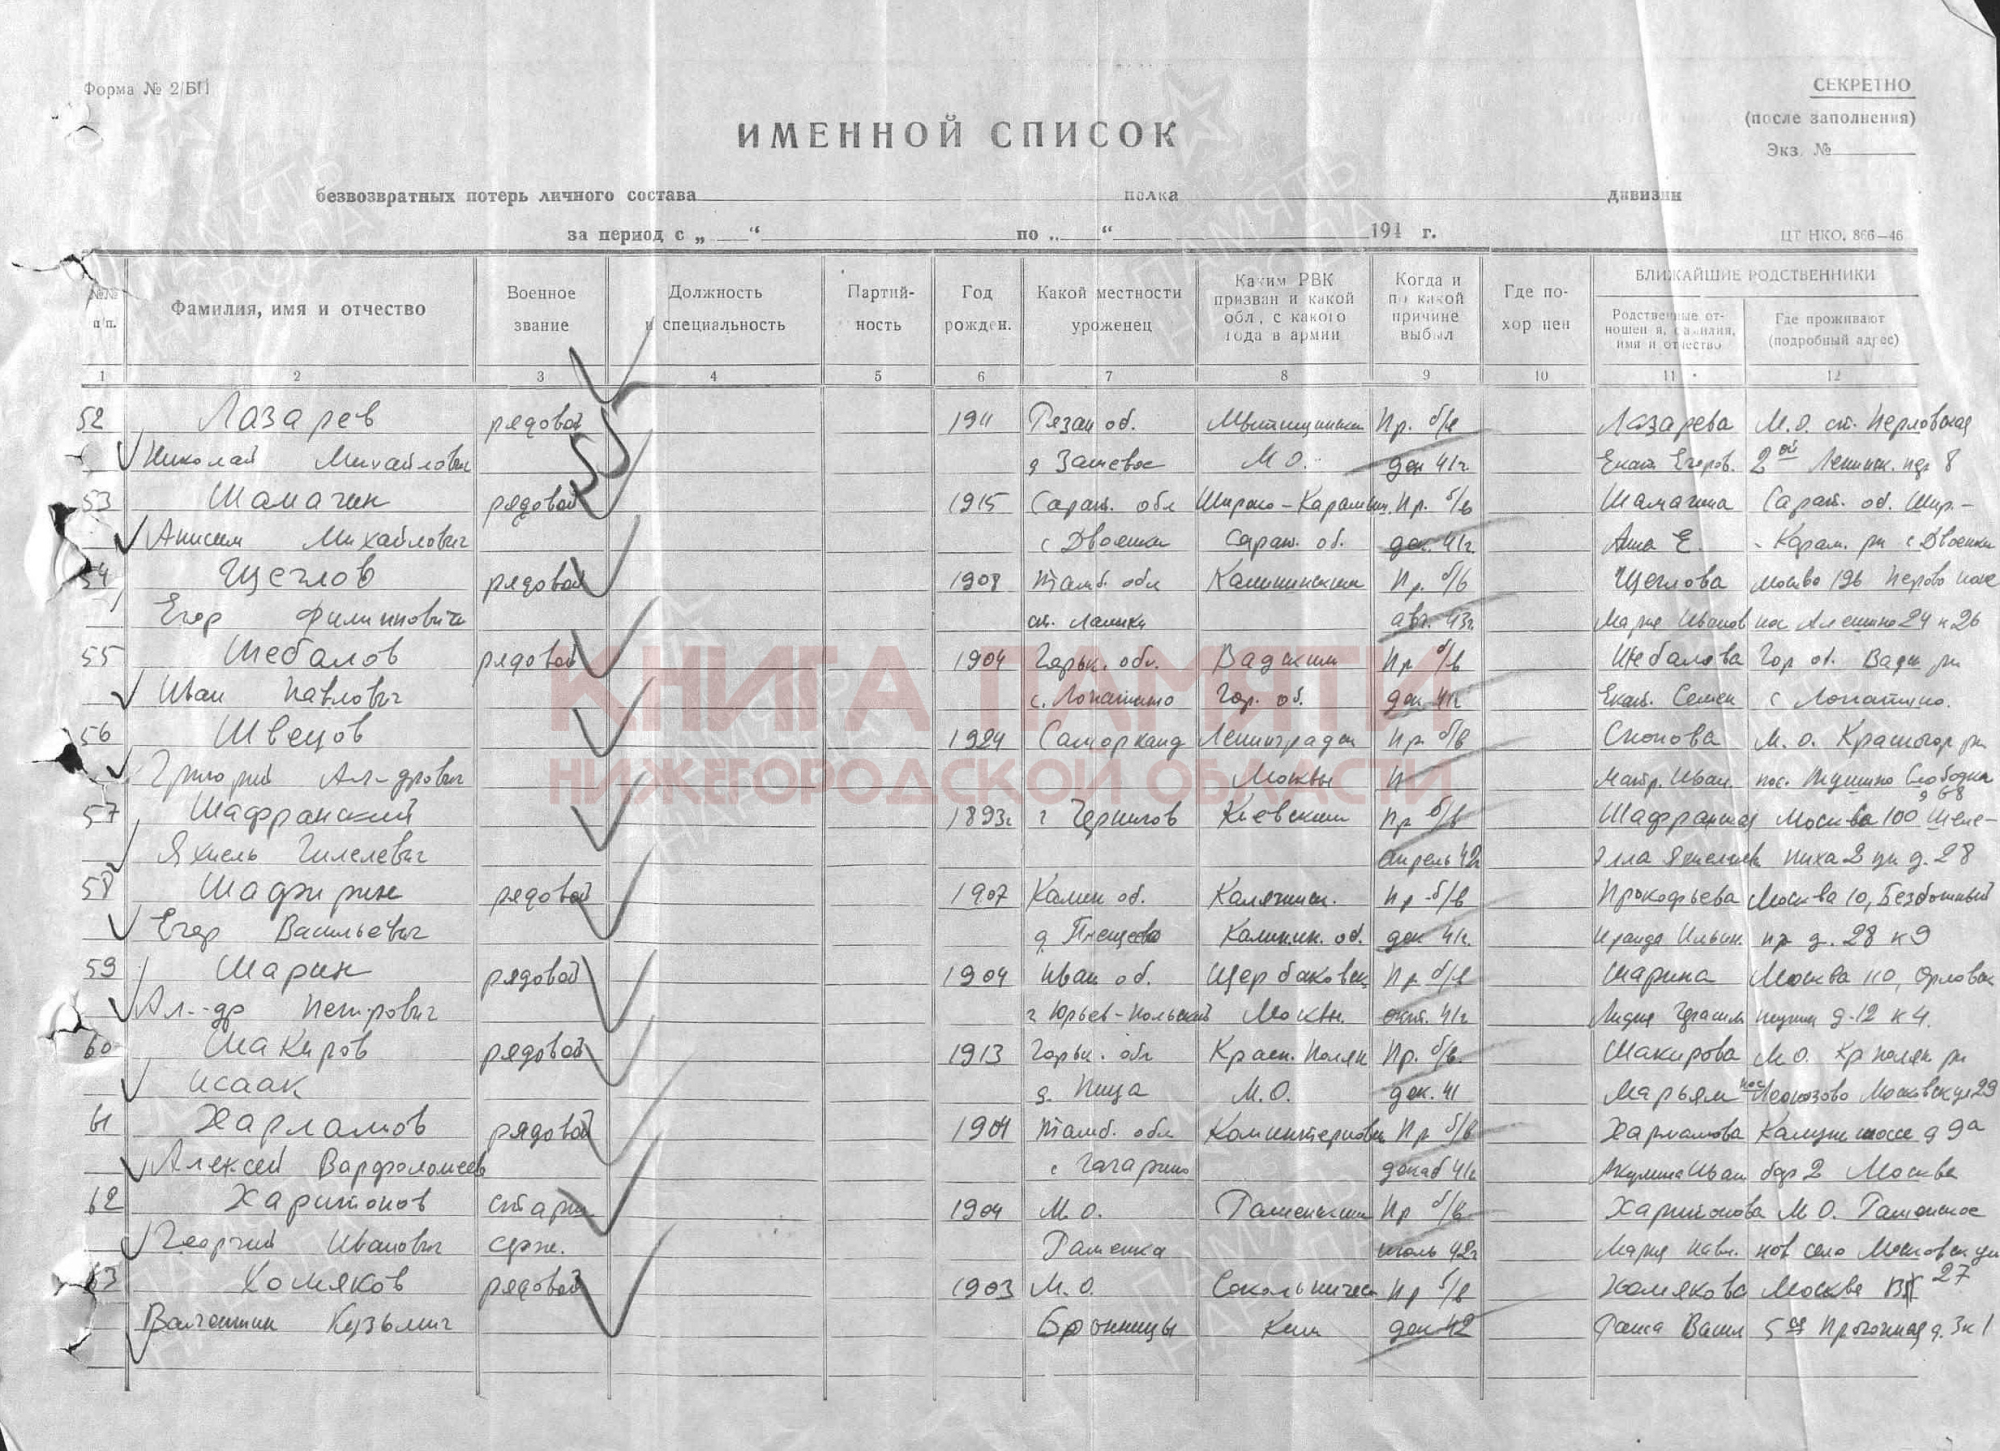 Форма № 2/БП
СЕКРЕТНО
(после заполнения)
Экз. №
ИМЕННОЙ СПИСОК
безвозвратных потерь личного состава полка дивизии
за период с „ “ по „ “ 194 г.
ЦТ НКО. 866—46
№№ п/п. Фамилия, имя и отчество Военное звание Должность и специальность Партийность Год рожден. Какой местности уроженец Каким РВК призван и какой обл., с какого года в армии Когда и по какой причине выбыл Где похоронен БЛИЖАЙШИЕ РОДСТВЕННИКИ
Родственные отношения, фамилия, имя и отчество Где проживают (подробный адрес)
1 2 3 4 5 6 7 8 9 10 11 12
52 Лазарев рядовой 1911 Рязан об. Мытищински Пр. б/в Лазарева М.О. ст. Перловская
Николай Михайлович М.О. дек 41г Екат. Егоров. 2ой Ленинск. пер 8
53 Шамагин рядовой 1915 Сарат. обл Широко-Карамыш. Пр. б/в Шамагина Сарат. об. Шир.-
Анисим Михайлович с Двоенки Сарат. об. дек. 41г Анна Е. - Карам. рн с Двоенки
54 Щеглов рядовой 1908 Тамб. обл Калининский Пр. б/в Щеглова Москва 196 Перово поле
Егор Филиппович авг. 43г Мария Иванов
55 Шебалов рядовой 1904 Горьк. обл. Вадский Пр б/в Шебалова Гор об. Вадск рн
Иван Павлович с. Лопатино Гор. об. дек 41г Екат. Семен с Лопатино.
56 Швецов 1924 Самарканд Ленинградск Пр. б/в М.О. Красногор рн
Григорий Ал-дрович Москвы Матр. Иван. пос. Тушино Слободка
57 Шафранский 1893г г Чернигов Киевский Пр б/в Шафранская Москва 100 Шеле-
Яхиель Гилелевич апрель 42г пиха 2 д. 28
58 Шафирин рядовой 1907 Калин об. Калязинск. Пр б/в Прокофьева Москва 10, Безбожный
Егор Васильевич д. Плещеево Калинин. об. дек 41г. Ираида Ильин. пр д. 28 к 9
59 Шарин рядовой 1904 Иван об. Щербаковск Пр б/в Шарина Москва 110, Орловск
Ал-др Петрович г Юрьев-Польский Москвы. окт. 41г Лидия Герасим д-12 к 4.
60 Шакиров рядовой 1913 Горьк. обл Красн. Полян Пр. б/в. Шакирова М.О. Кр полян рн
Исаак д. Пица М.О. дек. 41 Марьям пос Леонозово Московск ул 29
61 Харламов рядовой 1904 Тамб. обл Коминтернов Пр б/в Харламова Калужс шоссе д 9а
Алексей Варфоломеев с Гагарино декаб 41г Акулина Иван бар 2 Москва
62 Харитонов старш 1904 М.О. Раменский Пр б/в Харитонова М.О. Раменское
Георгий Иванович серж. Раменка июль 42г Мария Павл. нов село Московск ул
63 Хомяков рядовой 1903 М.О. Сокольническ Пр б/в Хомякова Москва 27
Валентин Кузьмич Бронницы дек 42 Васил 5ая Прогонная д. 3 к 1
КНИГА ПАМЯТИ
НИЖЕГОРОДСКОЙ ОБЛАСТИ
ПАМЯТЬ НАРОДА